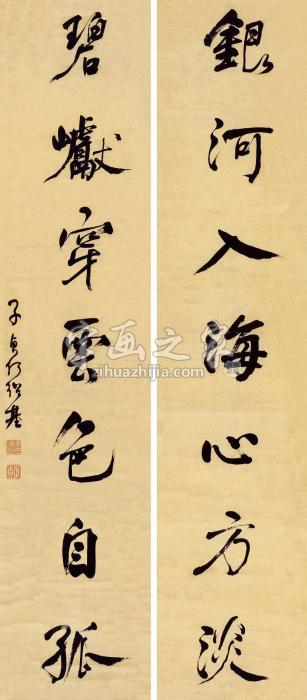 銀河入海心方淡
碧巘穿雲色自孤
子貞何紹基
书画之家
shuhuazhijia.com